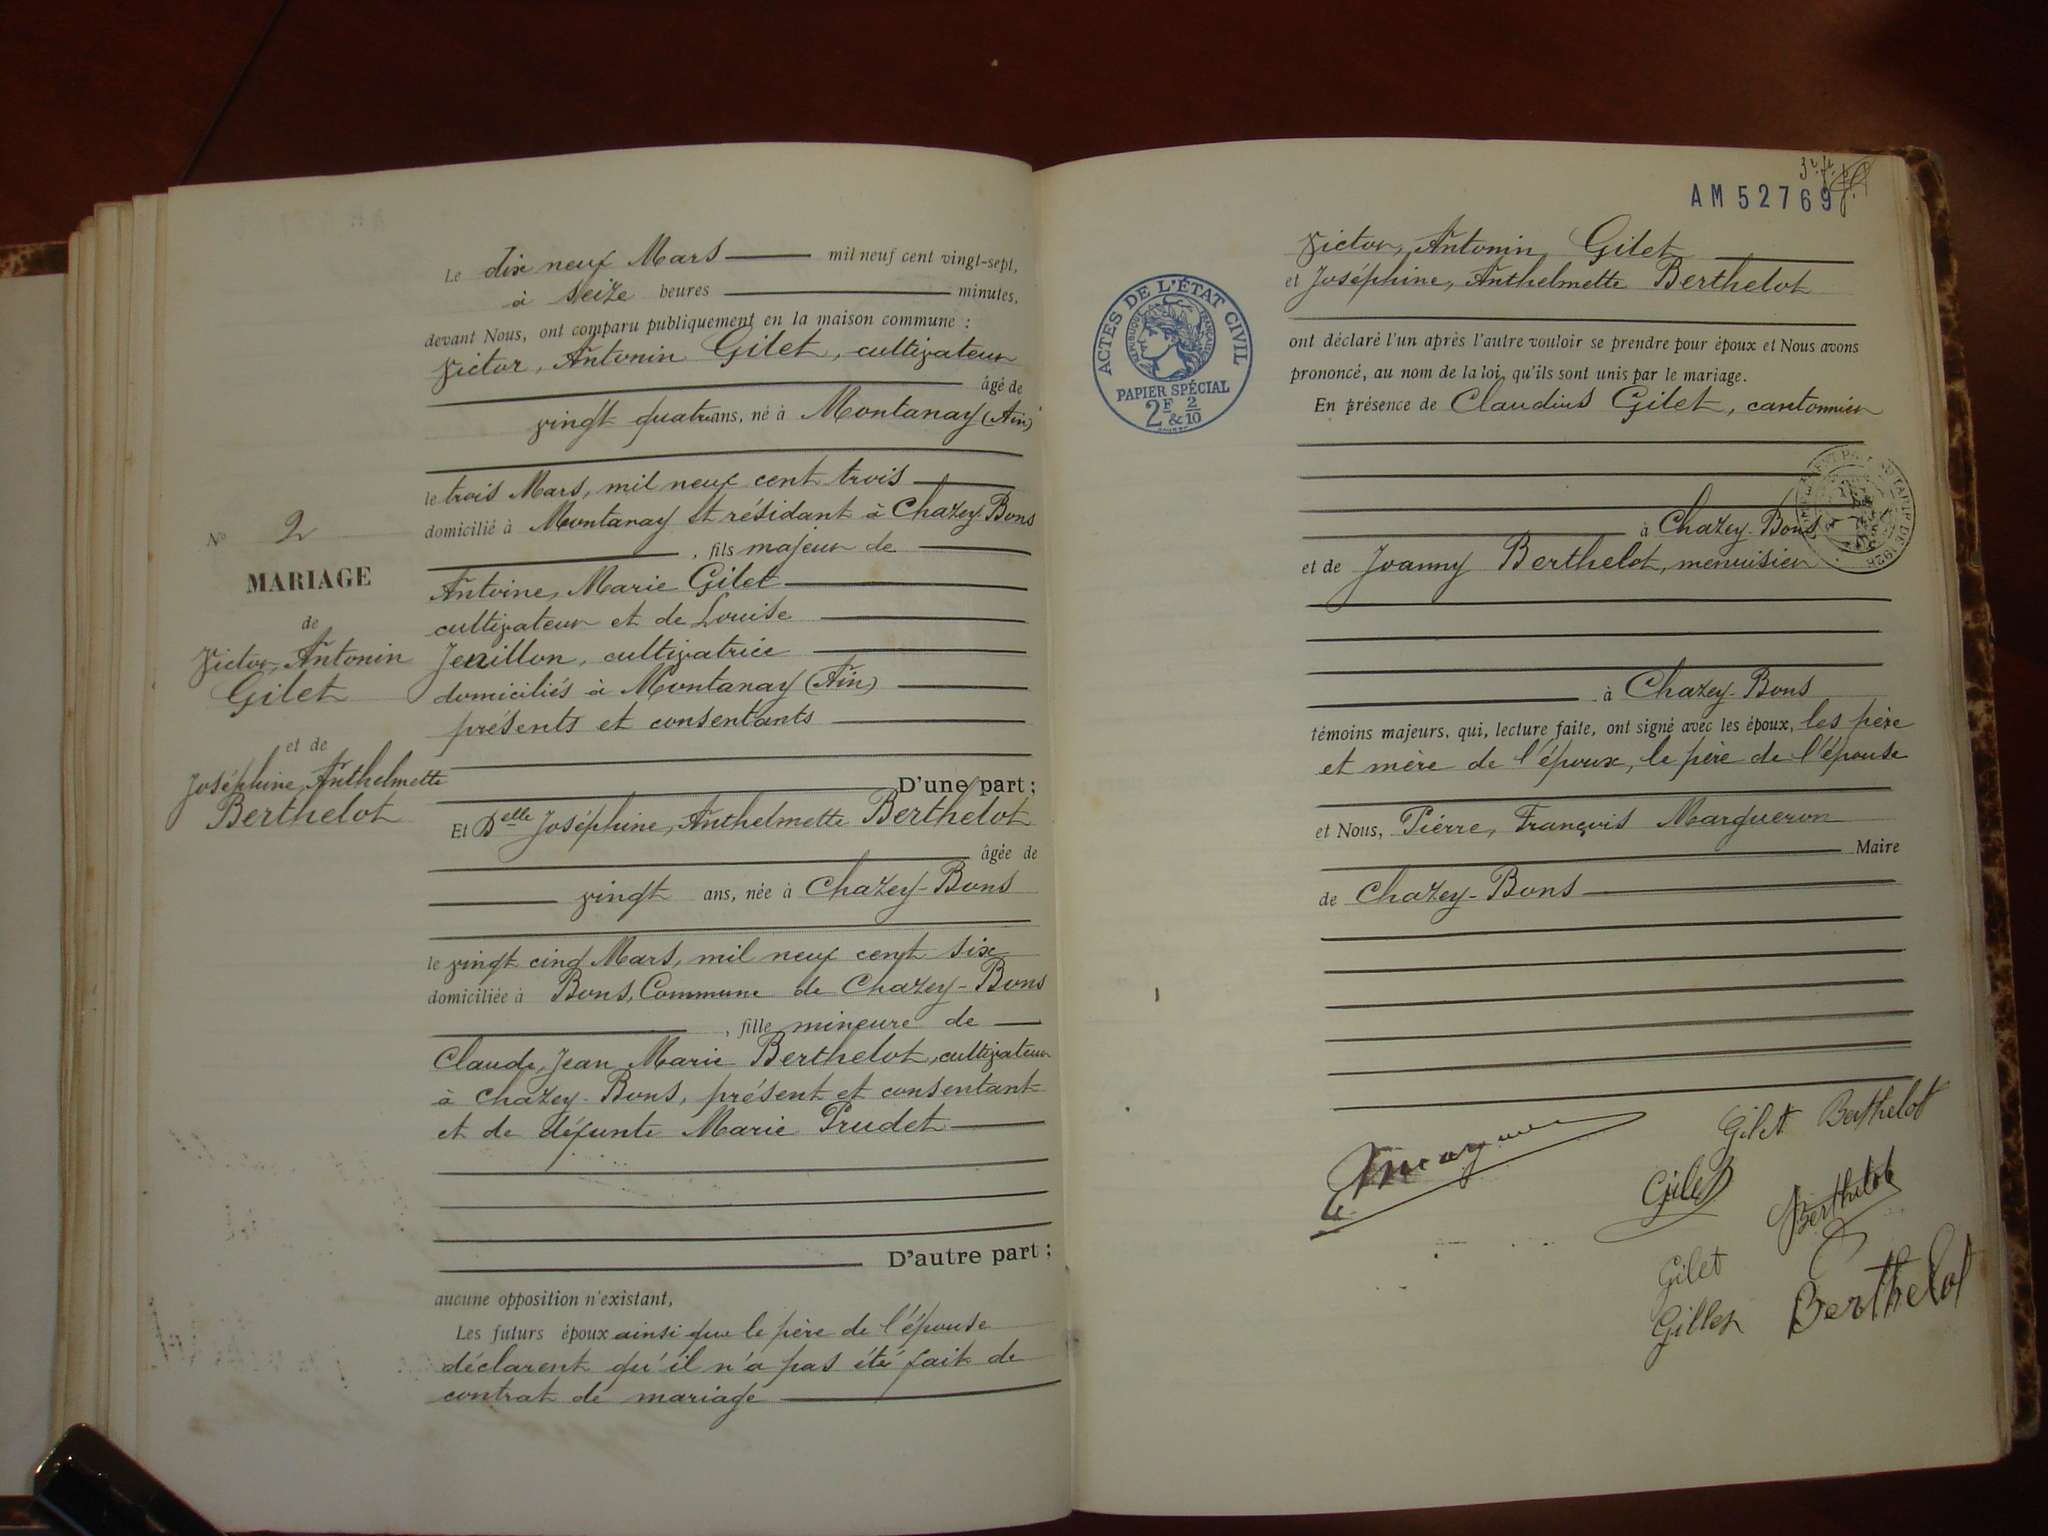 Le dix neuf Mars mil neuf cent vingt-sept,
à seize heures minutes,
devant Nous, ont comparu publiquement en la maison commune :
Victor, Antonin Gilet, cultivateur
âgé de
vingt quatre ans, né à Montanay (Ain)
le trois Mars, mil neuf cent trois
domicilié à Montanay et résidant à Chazey-Bons
, fils majeur de
Antoine, Marie Gilet
cultivateur et de Louise
Jenillon, cultivatrice
domiciliés à Montanay (Ain)
présents et consentants
D'une part ;
Et Delle Joséphine, Anthelmette Berthelot
âgée de
vingt ans, née à Chazey-Bons
le vingt cinq Mars, mil neuf cent six
domiciliée à Bons, Commune de Chazey-Bons
, fille mineure de
Claude, Jean Marie Berthelot, cultivateur
à Chazey-Bons, présent et consentant
et de défunte Marie Prudet
D'autre part ;
aucune opposition n'existant,
Les futurs époux ainsi que le père de l'épouse
déclarent qu'il n'a pas été fait de
contrat de mariage
No 2
MARIAGE
de
Victor, Antonin
Gilet
et de
Joséphine, Anthelmette
Berthelot
AM 52769
Victor, Antonin Gilet
et Joséphine, Anthelmette Berthelot
ACTES DE L'ÉTAT CIVIL
RÉPUBLIQUE FRANÇAISE
PAPIER SPÉCIAL
2F & 2/10
ont déclaré l'un après l'autre vouloir se prendre pour époux et Nous avons
prononcé, au nom de la loi, qu'ils sont unis par le mariage.
En présence de Claudius Gilet, cantonnier
à Chazey-Bons
et de Joanny Berthelot, menuisier
à Chazey-Bons
témoins majeurs, qui, lecture faite, ont signé avec les époux, les père
et mère de l'époux, le père de l'épouse
et Nous, Pierre, François Margueron
Maire
de Chazey-Bons
Gilet Berthelot
Gilet Berthelot
Gilet
Gillet Berthelot